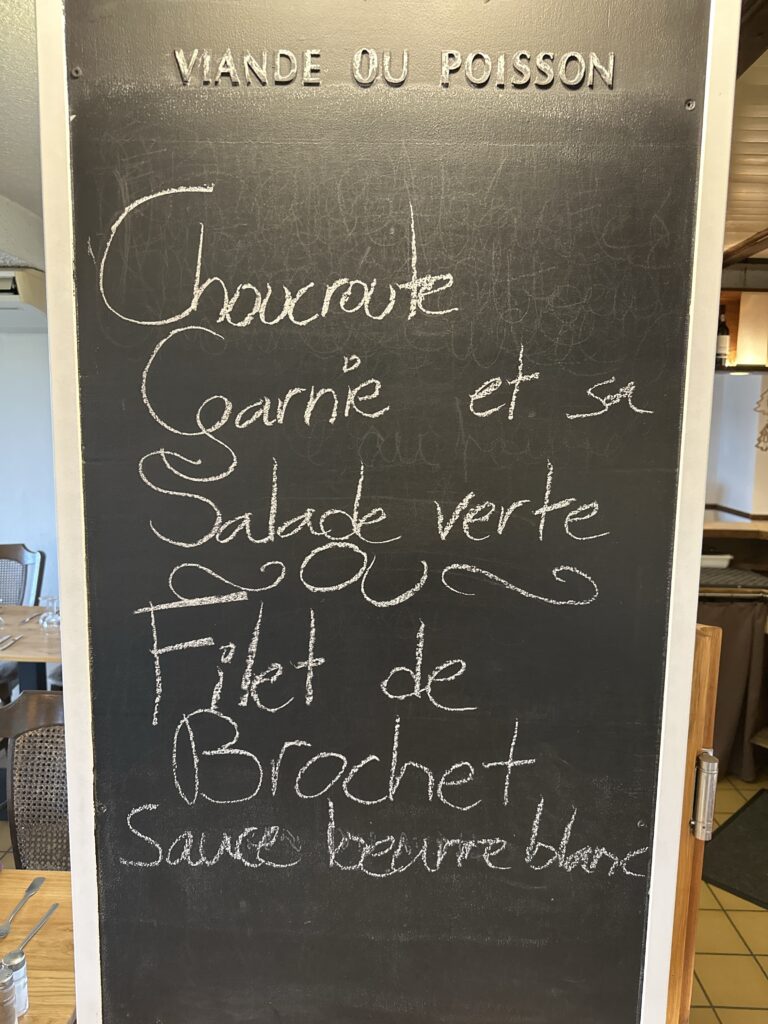 VIANDE OU POISSON
Choucroute
Garnie et sa
Salade verte
OU
Filet de
Brochet
Sauce beurre blanc